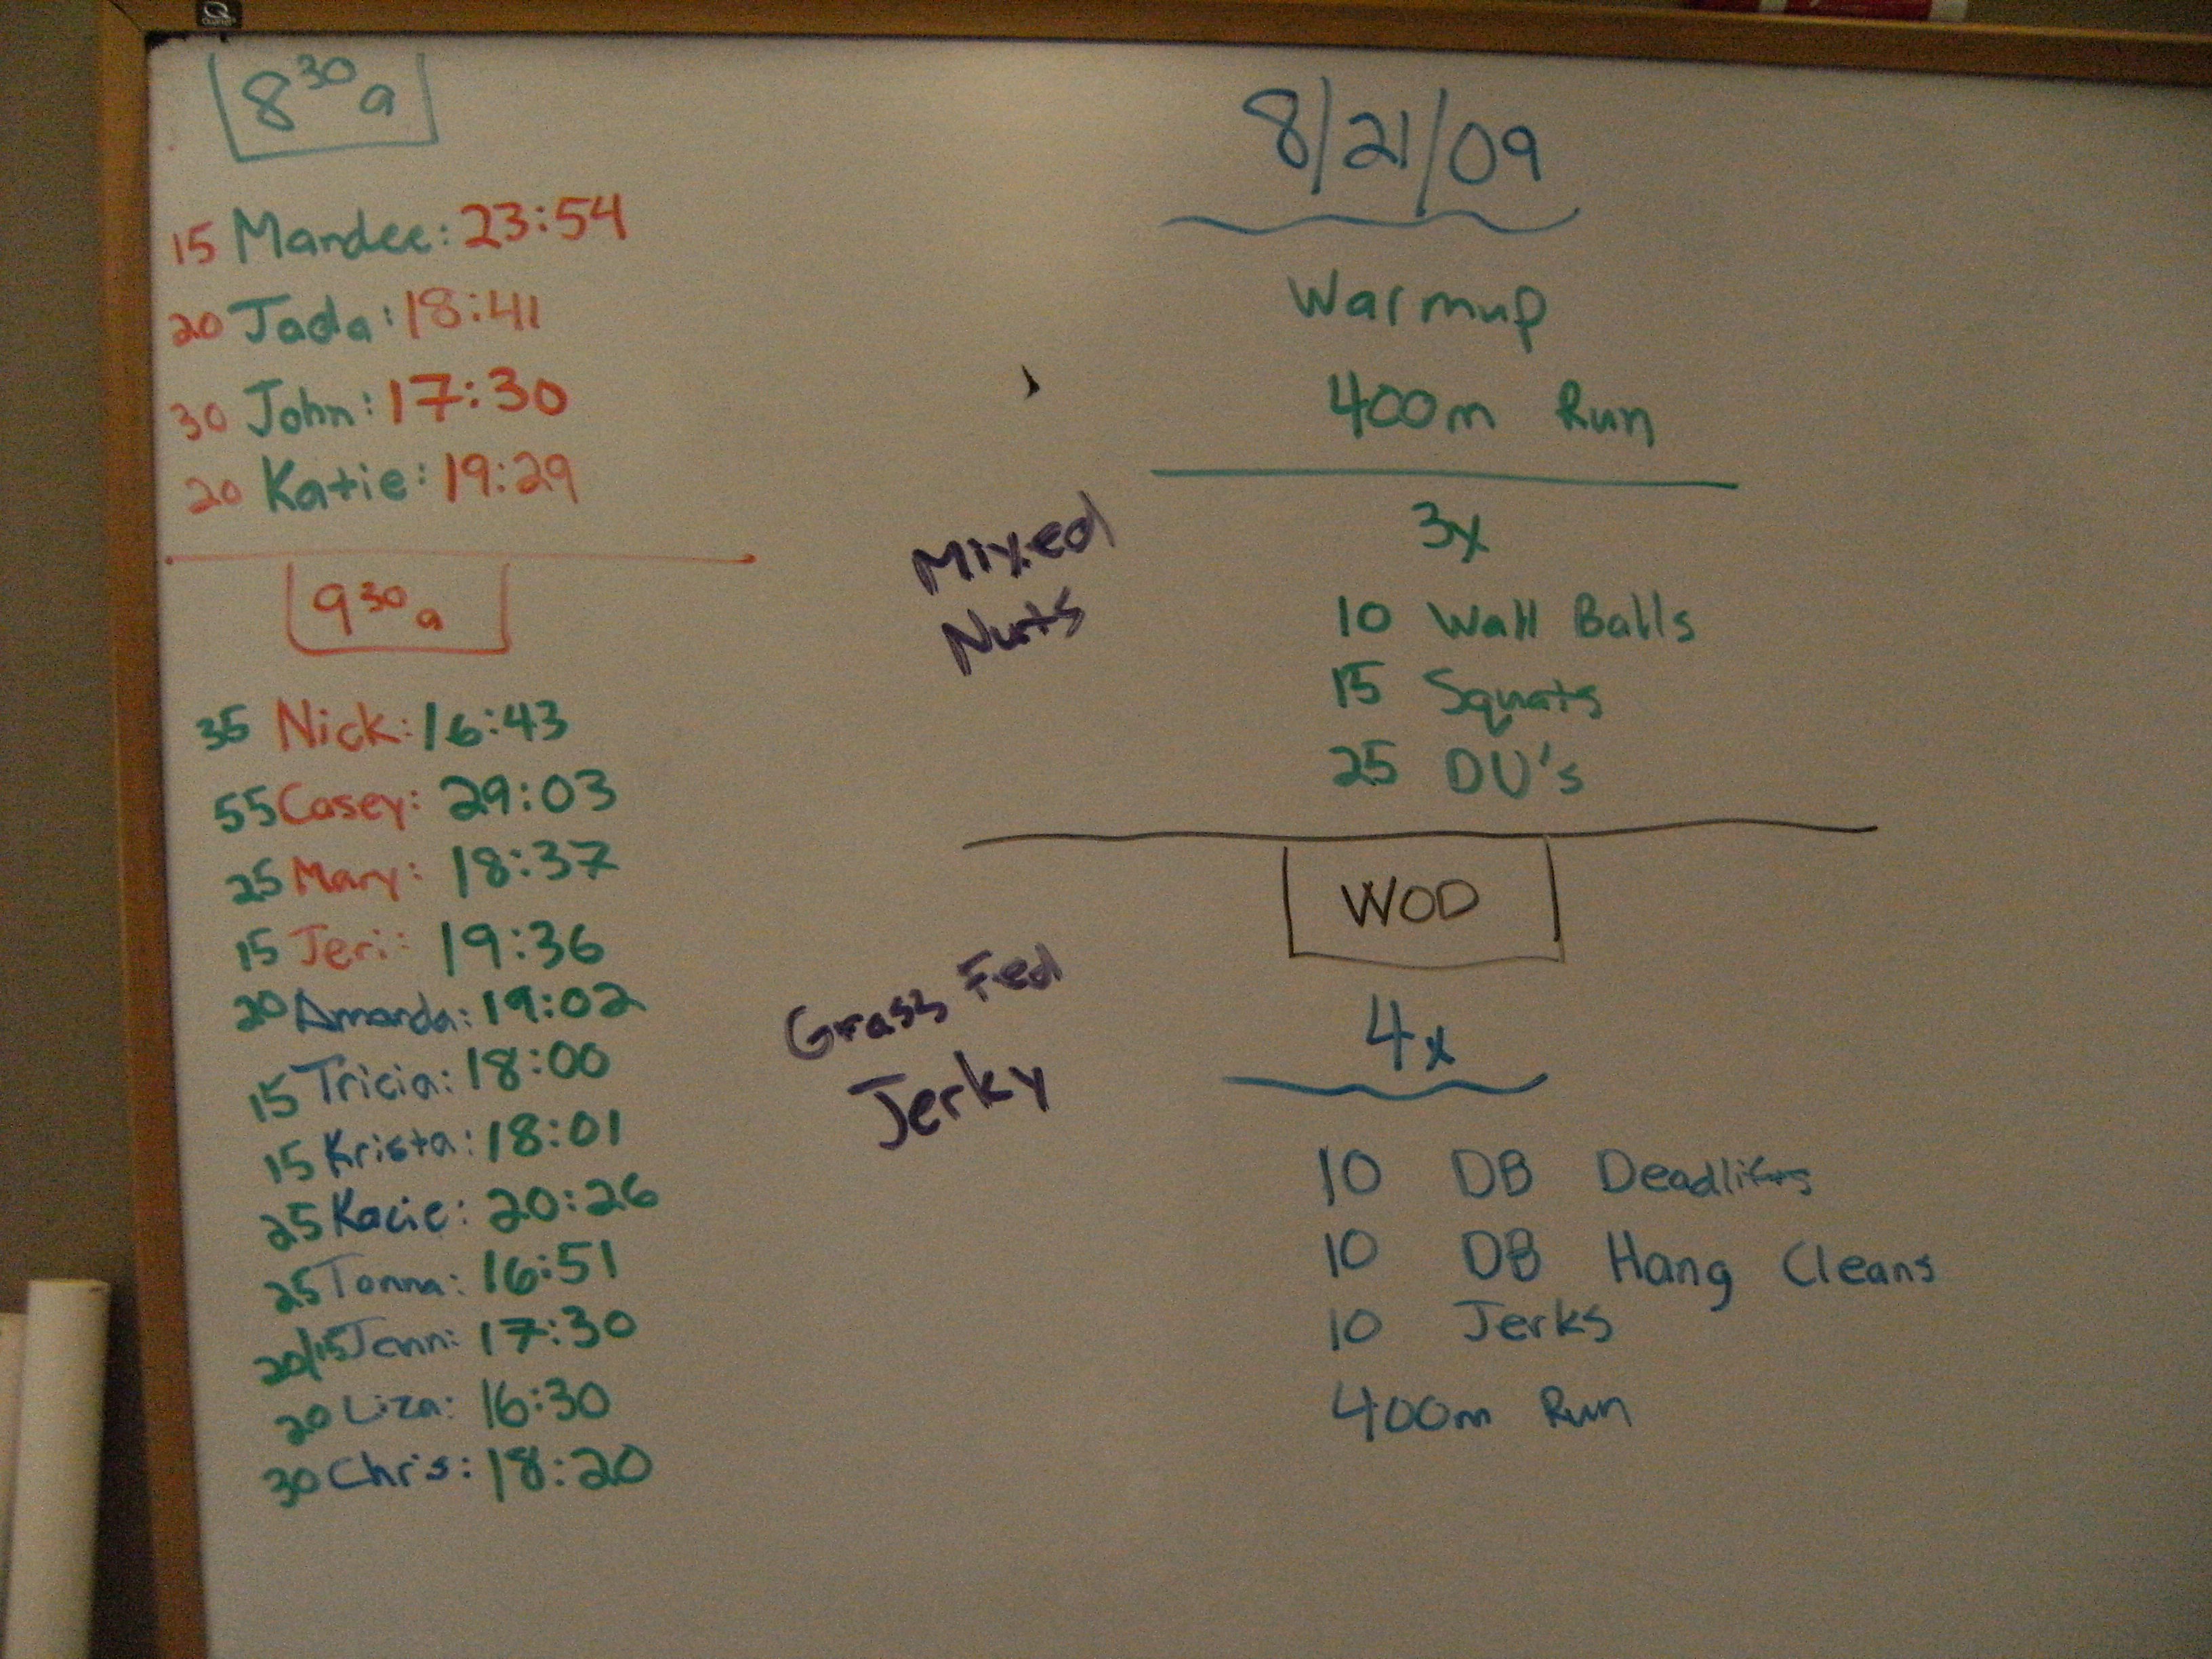 8 30 a
15 Mandee: 23:54
20 Jada: 18:41
30 John: 17:30
20 Katie: 19:29
9 30 a
35 Nick: 16:43
55 Casey: 29:03
25 Mary: 18:37
15 Jeri: 19:36
20 Amanda: 19:02
15 Tricia: 18:00
15 Krista: 18:01
25 Kacie: 20:26
25 Tonna: 16:51
20/15 Jenn: 17:30
20 Liza: 16:30
30 Chris: 18:20
Mixed
Nuts
Grass Fed
Jerky
8/21/09
Warmup
400m Run
3x
10 Wall Balls
15 Squats
25 DU's
WOD
4x
10 DB Deadlifts
10 DB Hang Cleans
10 Jerks
400m Run